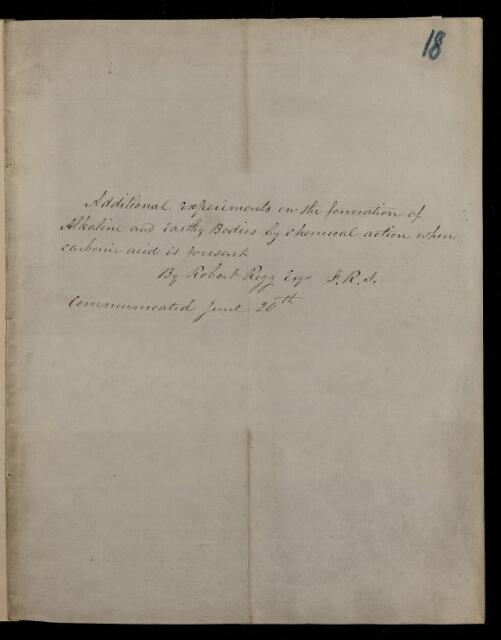 18
Additional experiments on the formation of
Alkaline and earthy Bodies by chemical action when
carbonic acid is present
By Robert Rigg Esqr F.R.S.
Communicated June 20th